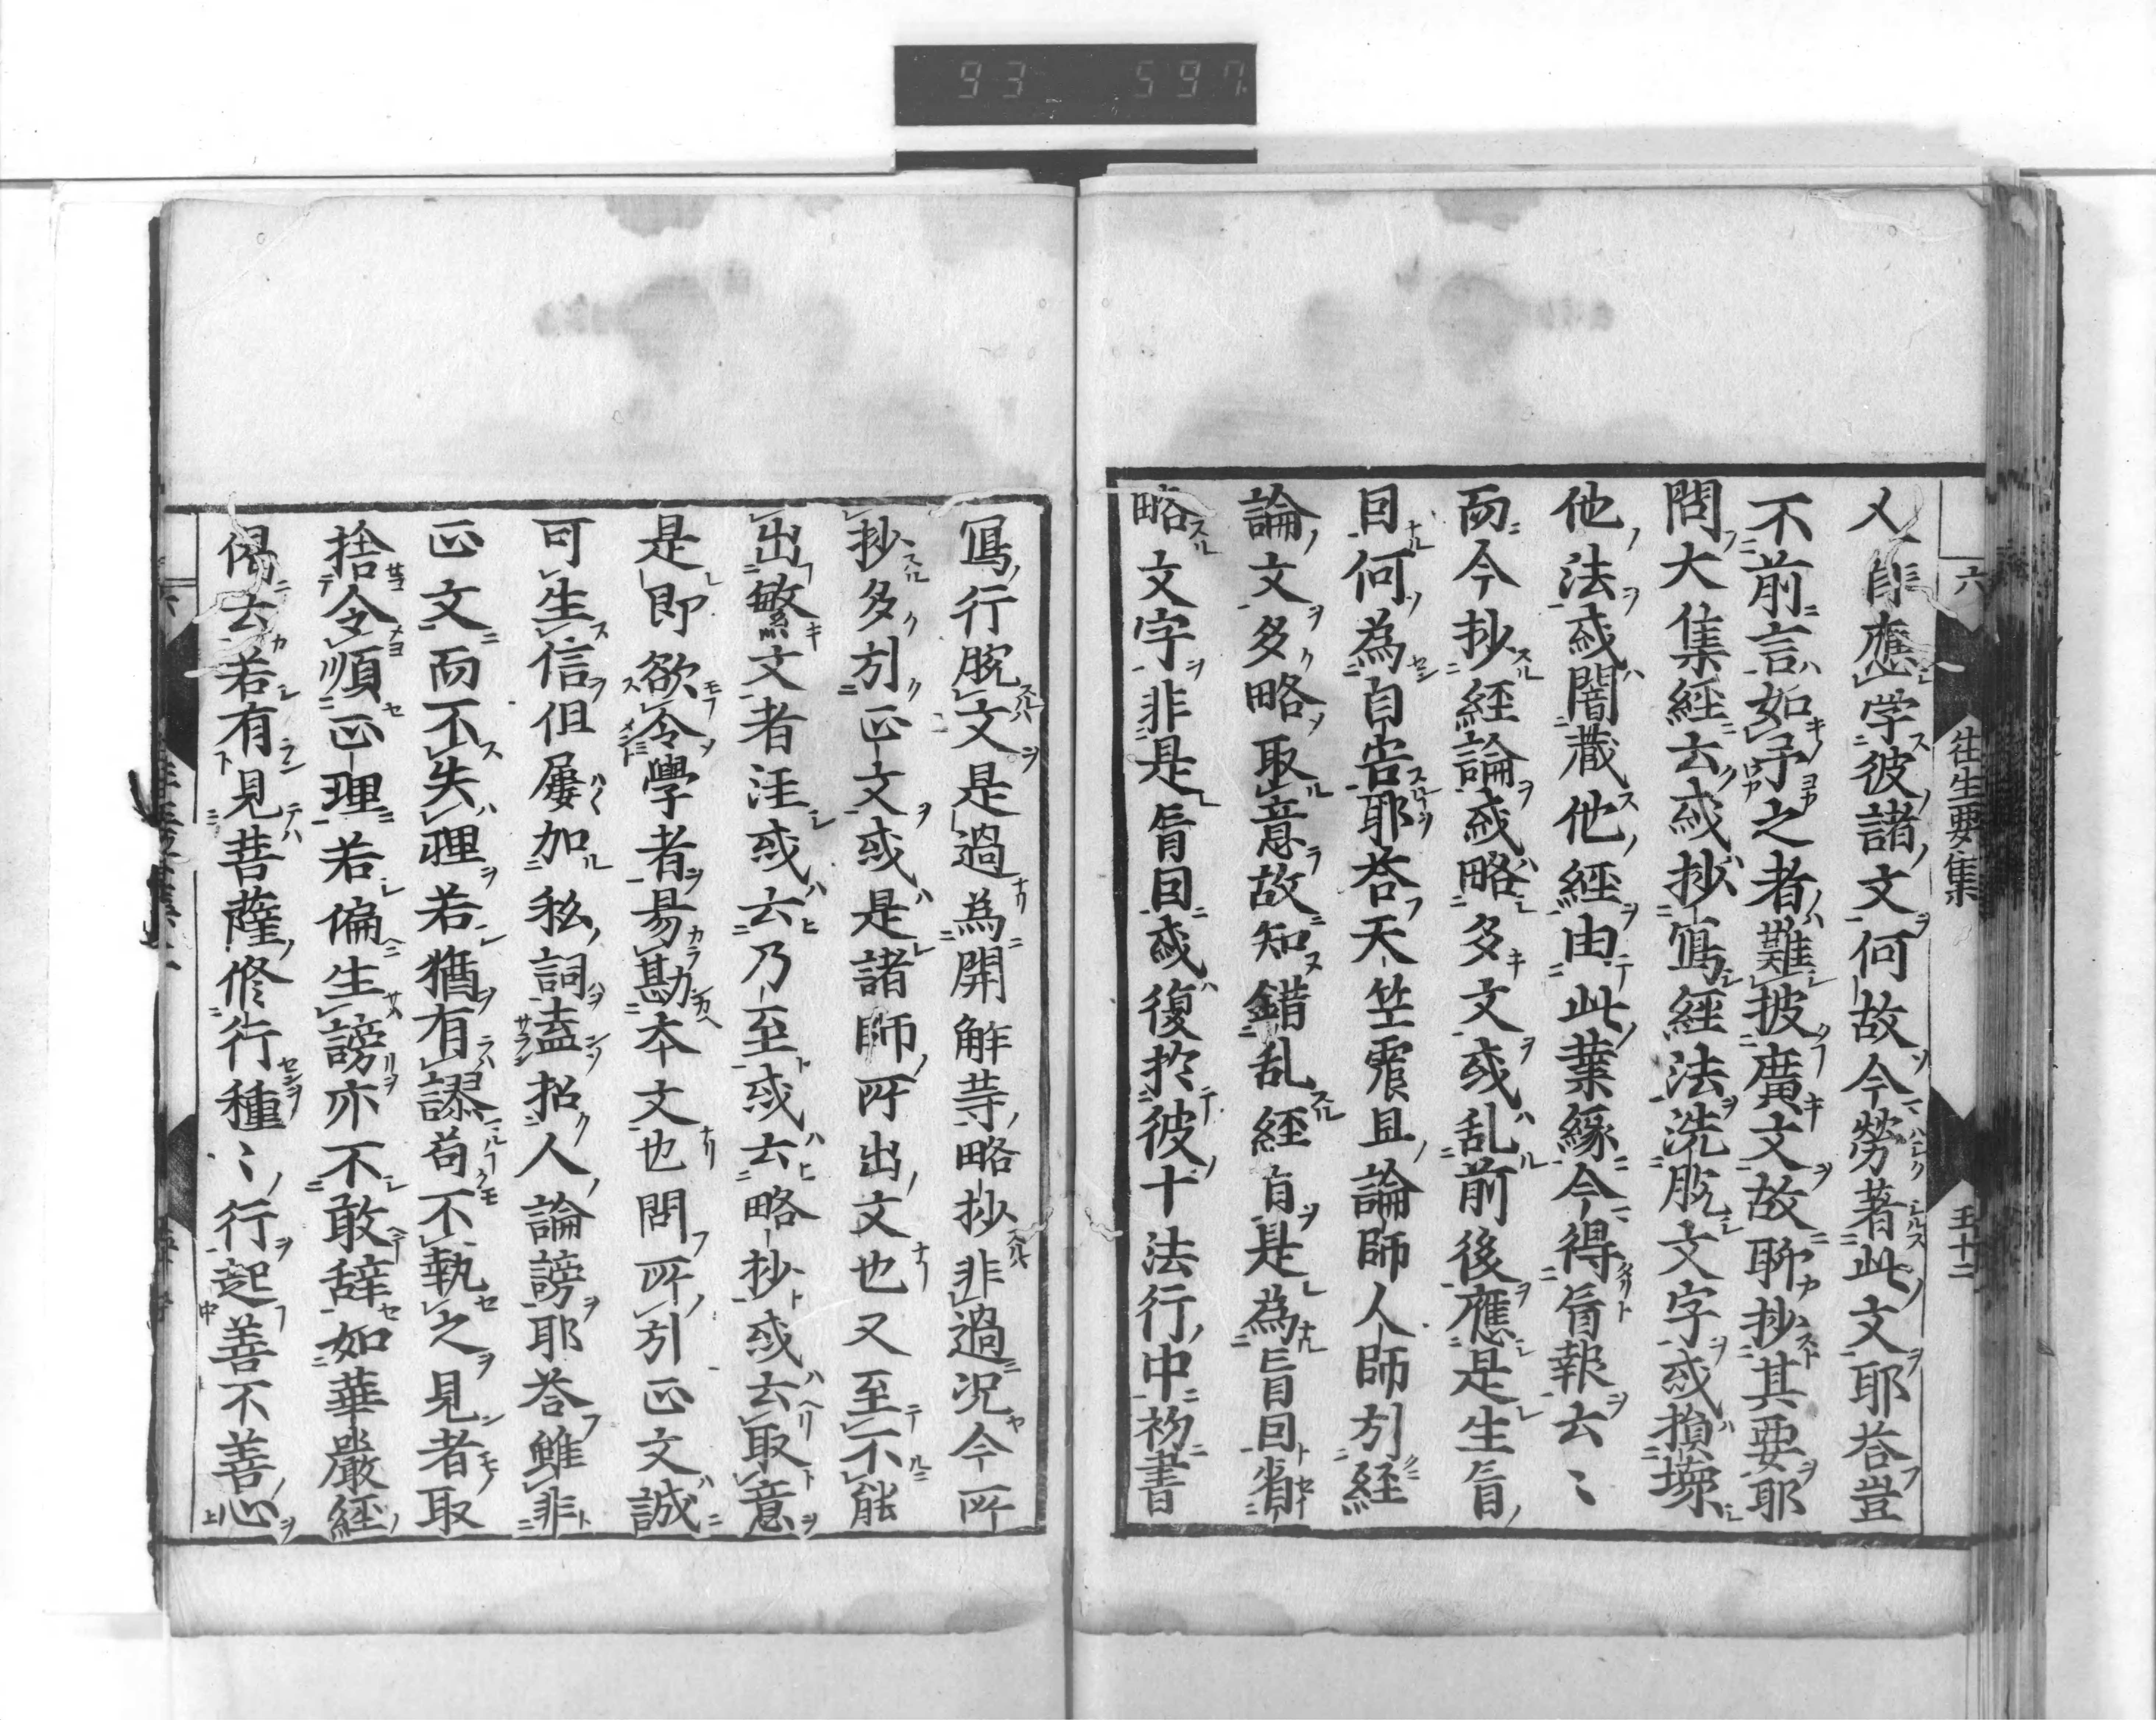 93 597
六 往生要集 五十二
人即應学彼諸文何故今勞著此文耶荅豈
不前言如予之者難披廣文故聊抄其要耶
問大集經云或抄寫經法洗脱文字或損壊
他法或闇蔵他經由此業緣今得盲報云〻
而今抄經論或略多文或乱前後應是生盲
因何為自害耶荅天竺震旦論師人師引經
論文多略取意故知錯乱經旨是為盲因省
略文字非是盲因或復扵彼十法行中初書
寫行脱文是過為開解等略抄非過况今所
抄多引正文或是諸師所出文也又至不能
出繁文者注或云乃至或云略抄或云取意
是即欲令學者易勘本文也問所引正文誠
可生信但屢加私詞盍招人論謗耶荅雖非
正文而不失理若猶有謬苟不執之見者取
捨令順正理若偏生謗亦不敢辞如華嚴經
偈云若有見菩薩修行種〻行起善不善心